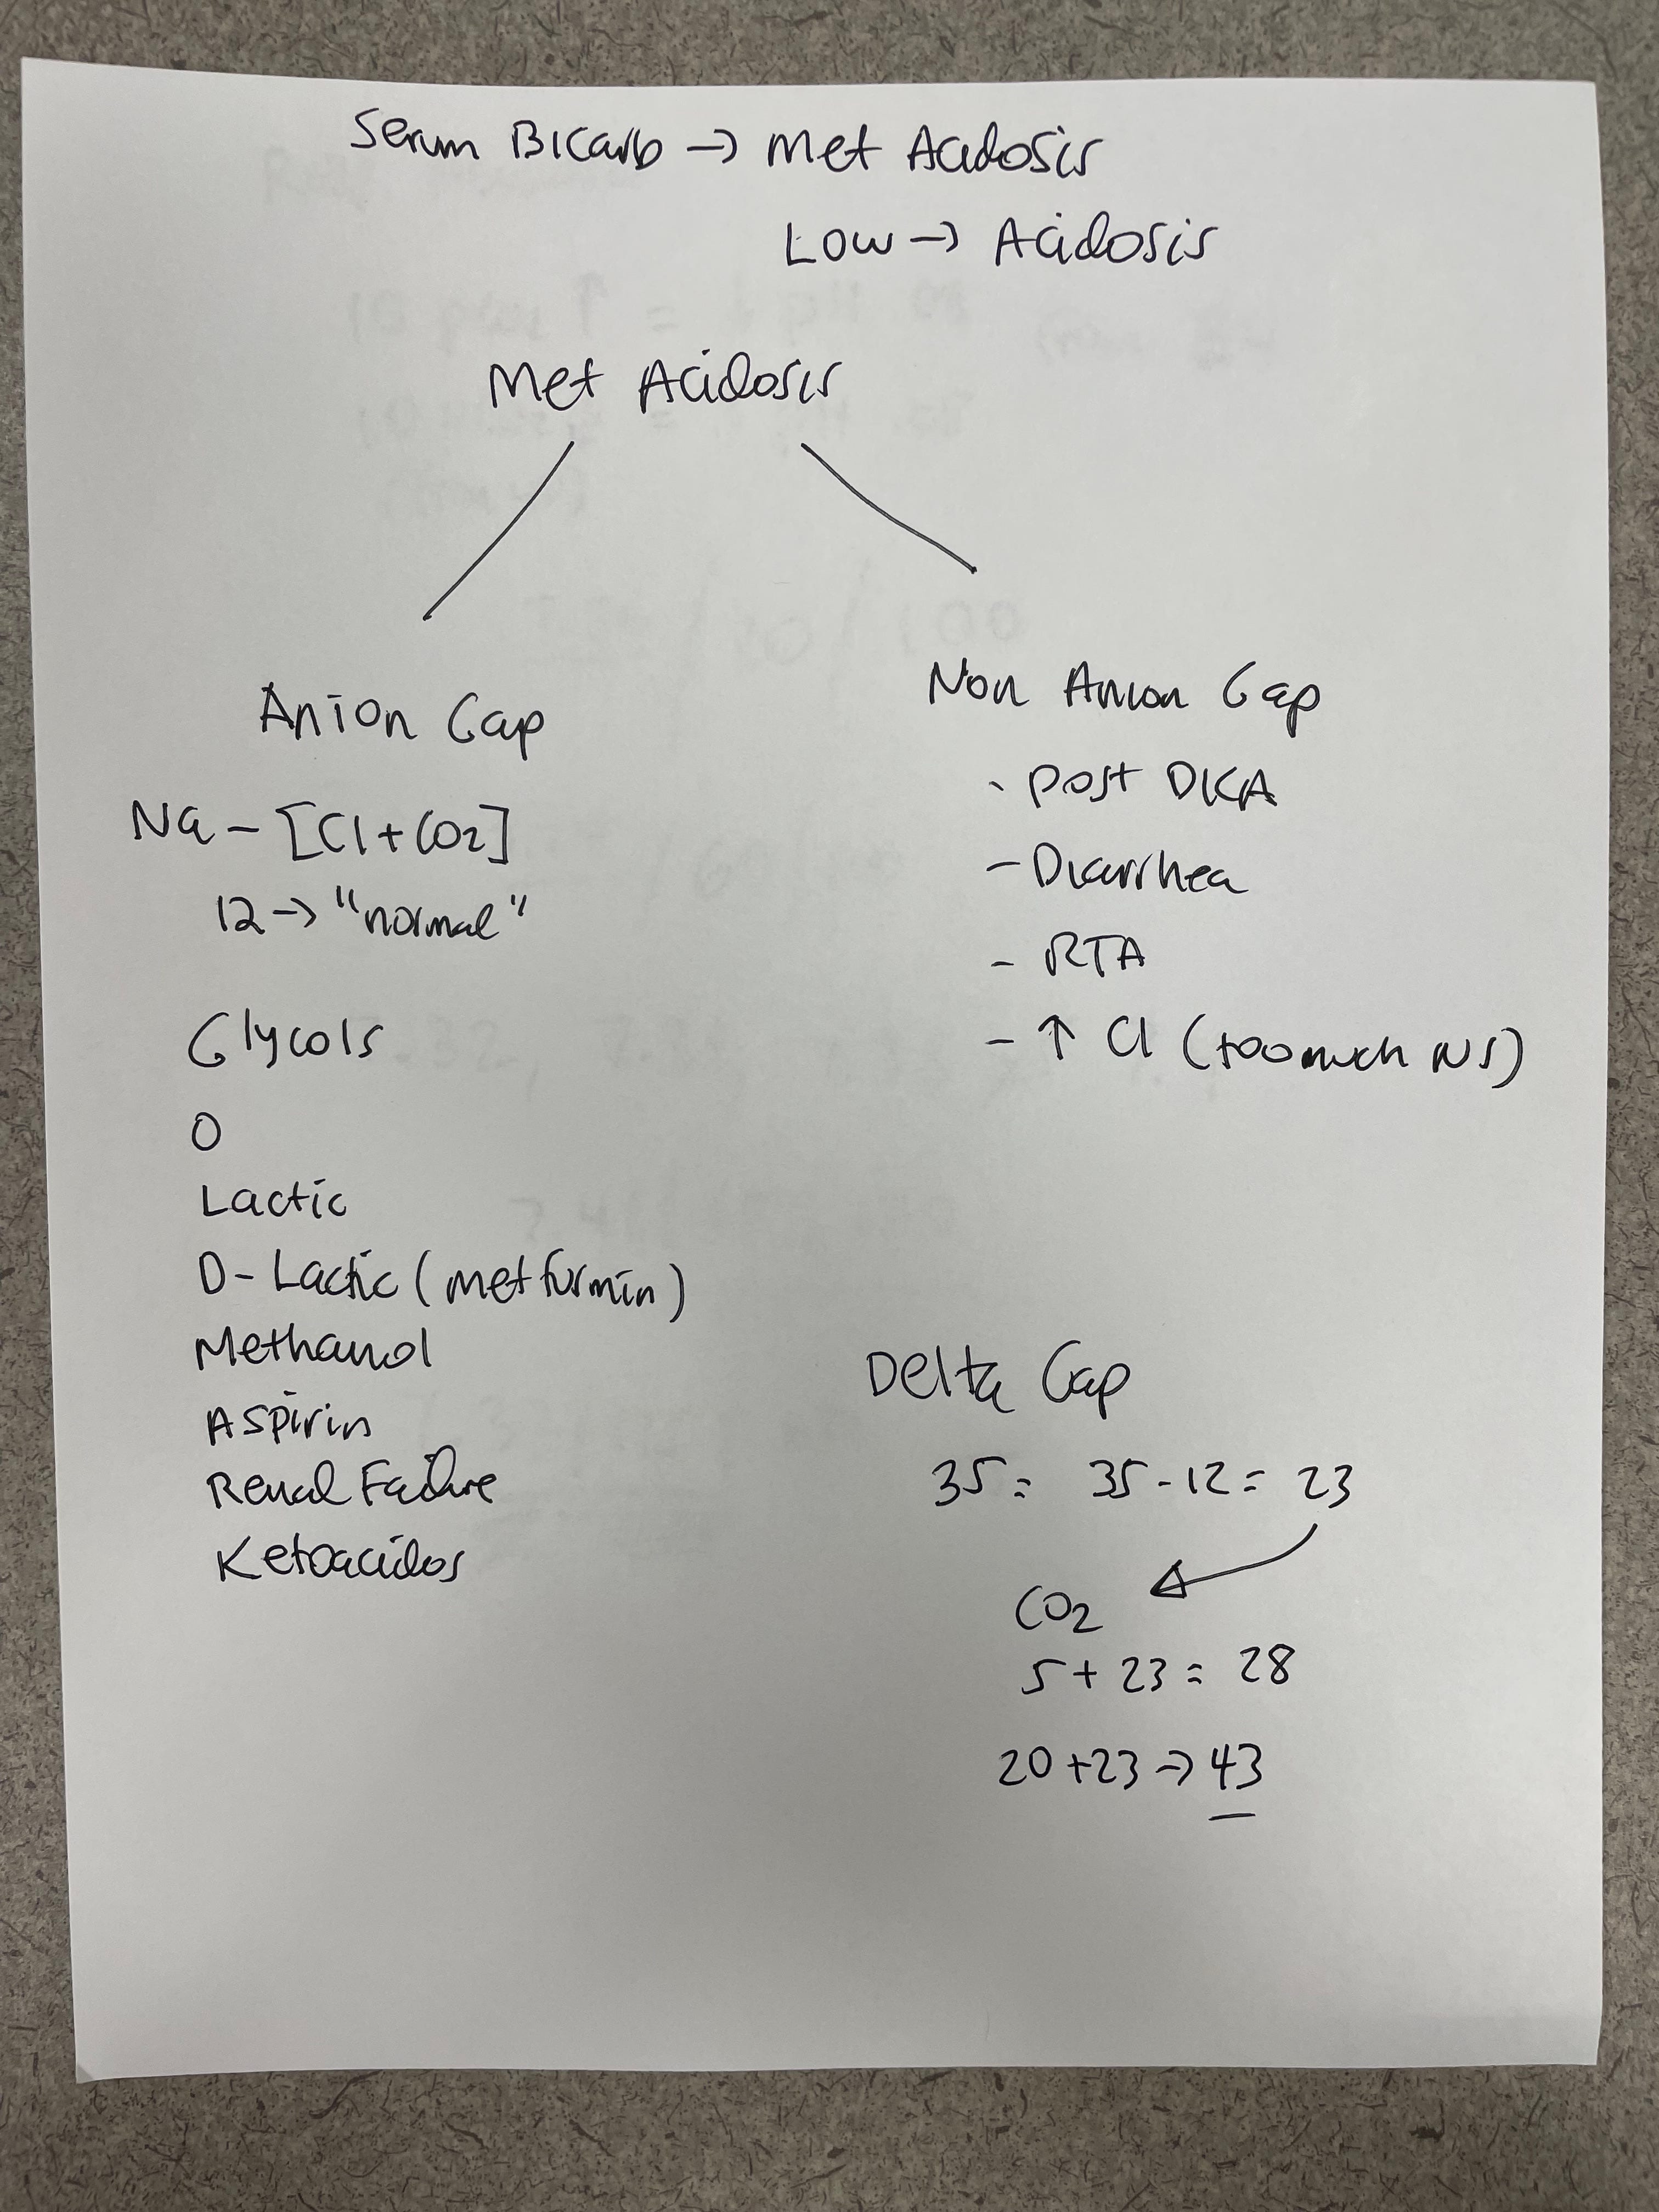 Serum Bicarb → Met Acidosis
Low → Acidosis
Met Acidosis
Anion Gap
Na - [Cl + CO2]
12 → "normal"
Glycols
O
Lactic
D-Lactic (metformin)
Methanol
Aspirin
Renal Failure
Ketoacidos
Non Anion Gap
- post DKA
- Diarrhea
- RTA
- ↑ Cl (too much NS)
Delta Gap
35 = 35 - 12 = 23
CO2
5 + 23 = 28
20 + 23 → 43